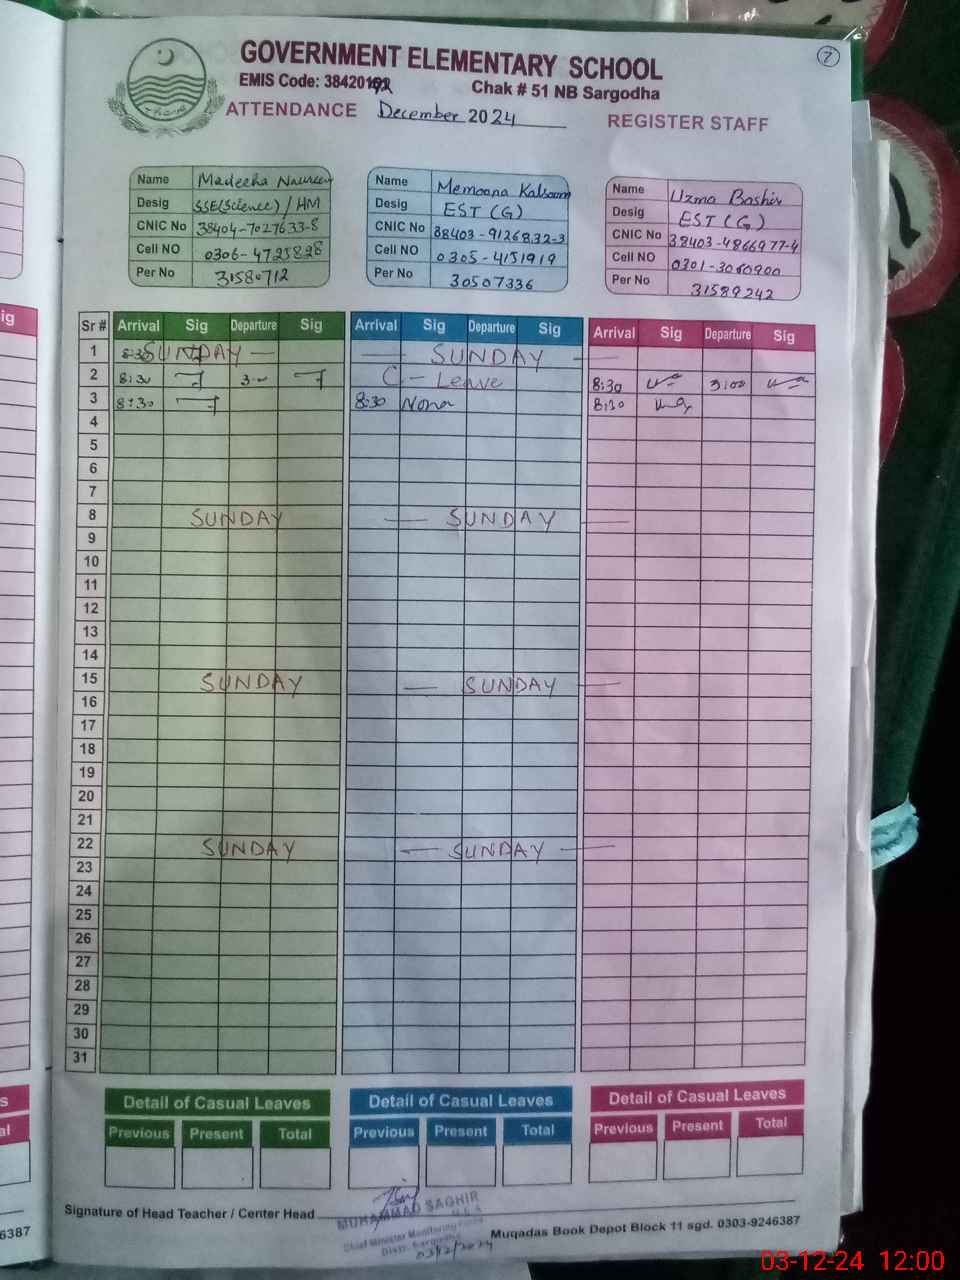 7
GOVERNMENT ELEMENTARY SCHOOL
EMIS Code: 38420192
Chak # 51 NB Sargodha
ATTENDANCE December 2024 REGISTER STAFF
Name Madeeha Naureen
Desig SSE(Science) / HM
CNIC No 38404-7027633-8
Cell NO 0306-4725828
Per No 31580712
Name Memoona Kalsoom
Desig EST (G)
CNIC No 38403-9126832-3
Cell NO 0305-4151919
Per No 30507336
Name Uzma Bashir
Desig EST (G)
CNIC No 38403-4866977-4
Cell NO 0301-3060900
Per No 31589242
Sr # Arrival Sig Departure Sig Arrival Sig Departure Sig Arrival Sig Departure Sig
1 8:30 SUNDAY — — SUNDAY —
2 8:30 3:00 C - Leave 8:30 3:00
3 8:30 8:30 Mona 8:30
4
5
6
7
8 SUNDAY — SUNDAY —
9
10
11
12
13
14
15 SUNDAY — SUNDAY —
16
17
18
19
20
21
22 SUNDAY — SUNDAY —
23
24
25
26
27
28
29
30
31
Detail of Casual Leaves Detail of Casual Leaves Detail of Casual Leaves
Previous Present Total Previous Present Total Previous Present Total
Signature of Head Teacher / Center Head
MUHAMMAD SAGHIR
Chief Minister Monitoring Force
Distt. Sargodha
03/12/2024
Muqadas Book Depot Block 11 sgd. 0303-9246387
6387
03-12-24 12:00